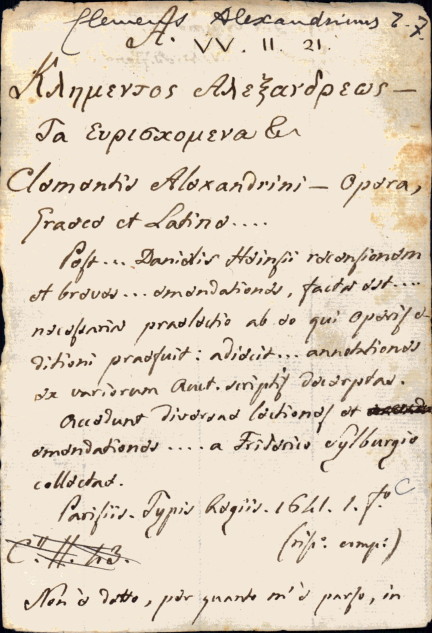 Clemens Alexandrinus
A. VV. II. 21.
Κλημεντος Αλεξανδρεως —
Τα Ευρισχομενα &
Clementis Alexandrini — Opera,
Graece et Latine ....
Post ... Danielis Heinsii recensionem
et breves ... emendationes, facta est ....
necessaria praelectio ab eo qui operis e-
ditioni praefuit: adiecit ... annotationes
ex variorum Auct. scriptis decerptas.
Accedunt diversae lectiones et
emendationes .... a Friderico Sylburgio
collectae.
Parisiis. Typis Regiis. 1641. 1. f.º C
(
Non è detto, per quanto m'è parso, in